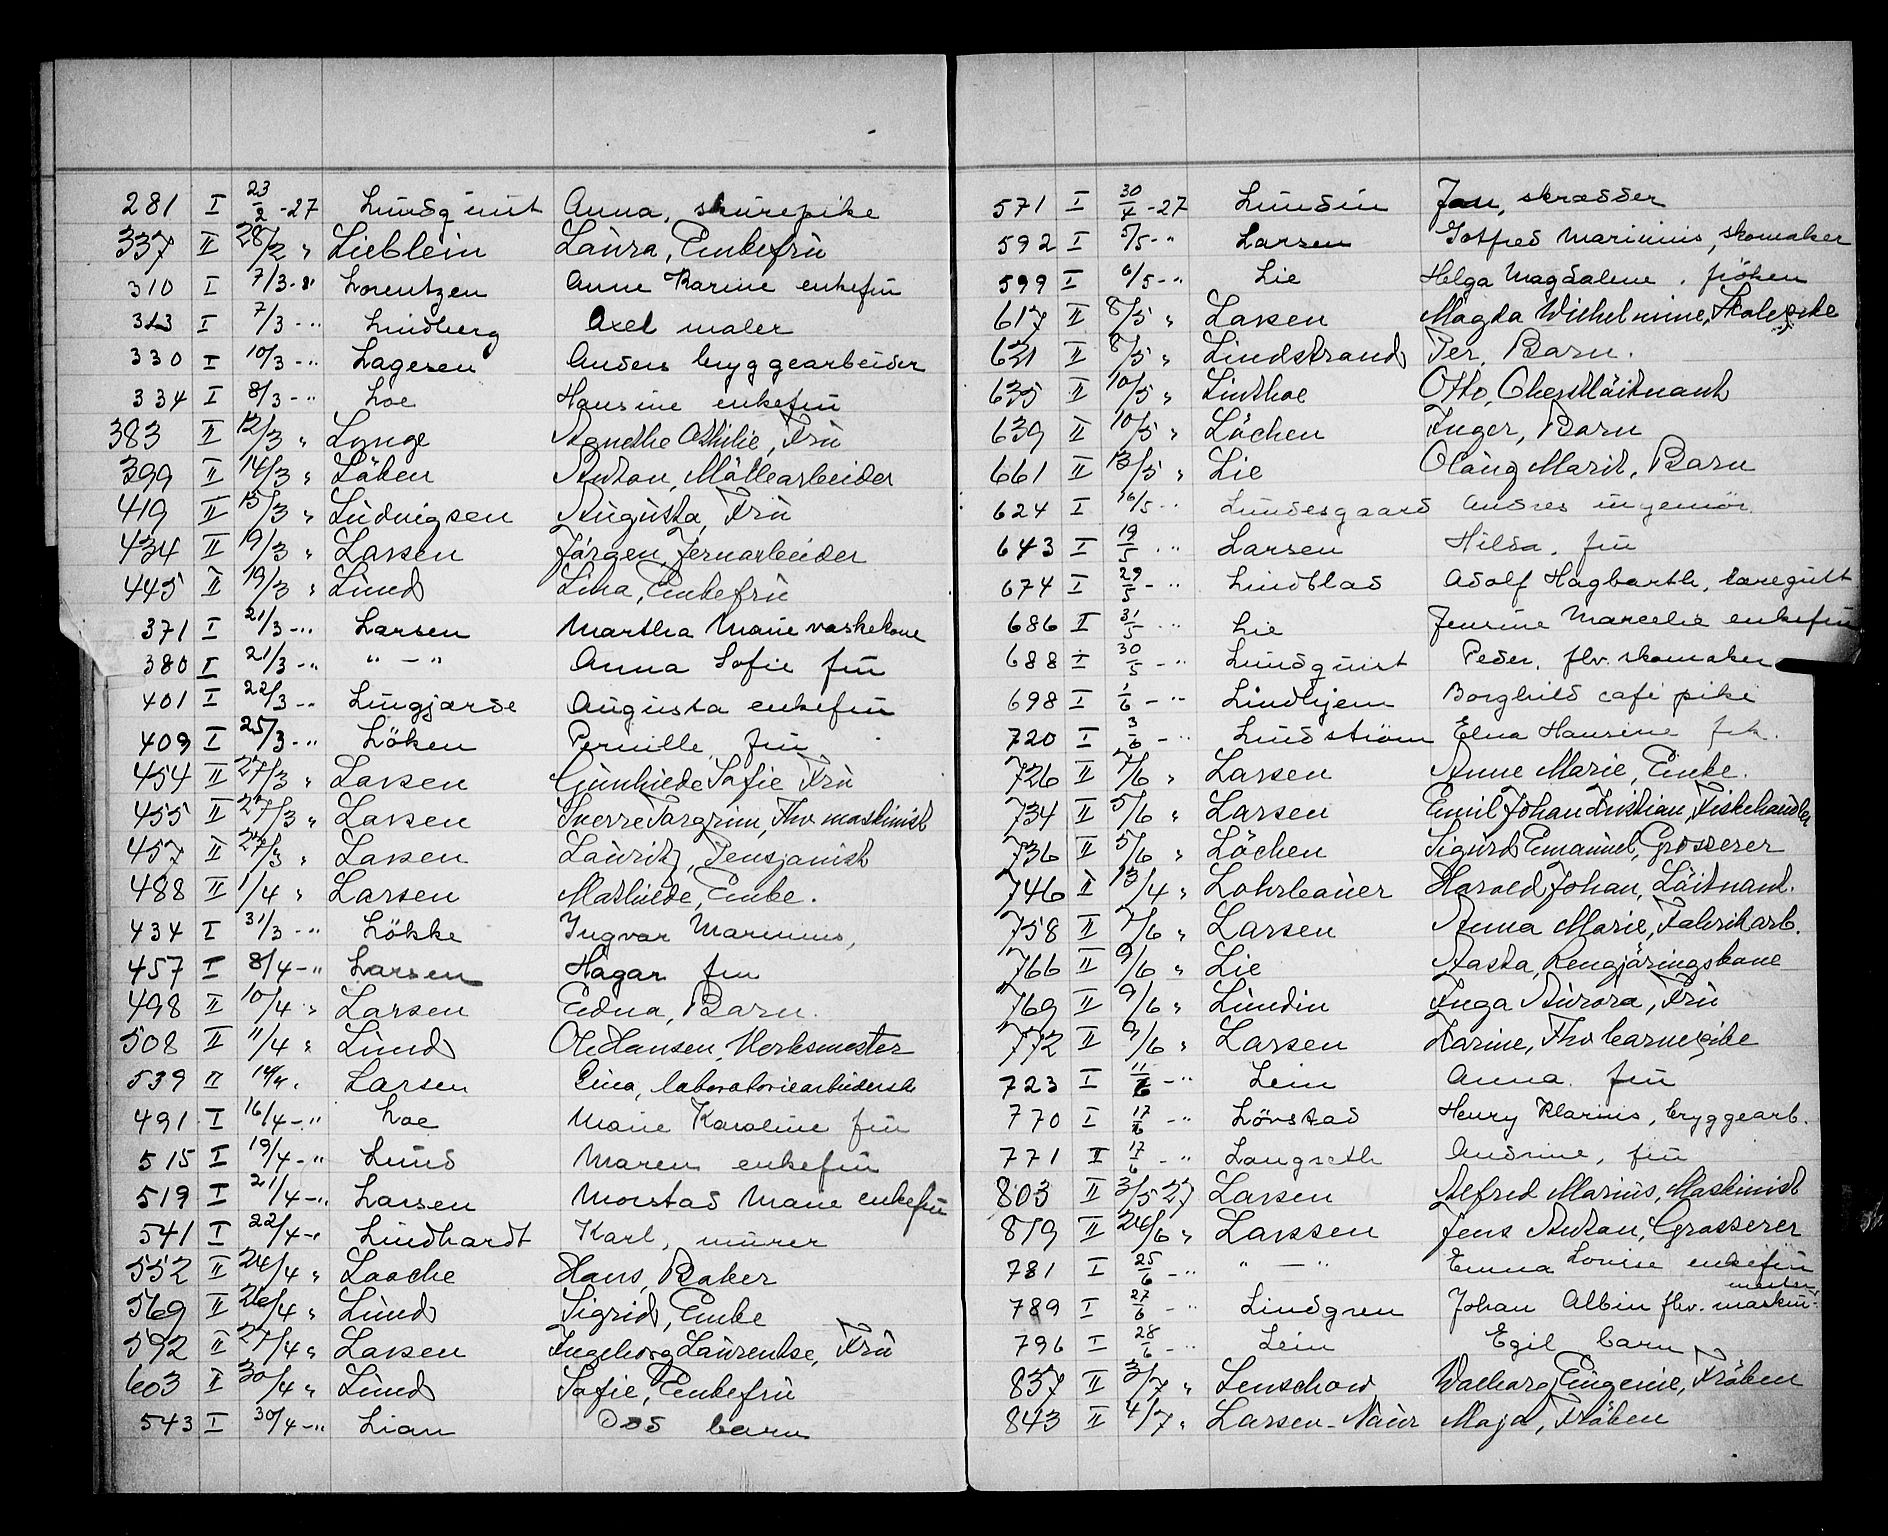 281 I 23/2-27 Lundquist Anna, skurepike
337 II 28/2 " Lieblein Laura, Enkefru
310 I 7/3-" Lorentzen Anne Karine enkefru
313 I 7/3-" Lindberg Axel maler
330 I 10/3-" Lagesen Anders bryggearbeider
334 I 8/3-" Loe Hansine enkefru
383 II 12/3 " Lynge Agnethe Othilie, Fru
399 II 14/3 " Löken Anton, Möllearbeider
419 II 15/3 " Ludvigsen Augusta, Fru
434 II 19/3 " Larsen Jörgen, Jernarbeider
445 II 19/3 " Lund Lina, Enkefru
371 I 21/3-" Larsen Martha Marie vaskekone
380 I 21/3-" " - " Anna Sofie fru
401 I 22/3-" Lungjærde Augusta enkefru
409 I 25/3-" Löken Pernille, fru
454 II 27/3 " Larsen Gunhilde Sofie Fru
455 II 27/3 " Larsen Sverre Torgrim, Fhv maskinist
457 II 27/3 " Larsen Lauritz, Pensjonist
488 II 1/4 " Larsen Mathilde, Enke.
434 I 31/3-" Lökke Ingvar Marinius,
457 I 8/4-" Larsen Hagar fru
498 II 10/4 " Larsen Edna, Barn.
508 II 11/4 " Lund Ole Hansen, Verksmester
539 II 14/4. Larsen Lina, laboratoriearbeiderske
491 I 16/4-" Loe Marie Karoline fru
515 I 19/4-" Lund Maren enkefru
519 I 21/4-" Larsen Morstad Marie enkefru
541 I 22/4-" Lindhardt Karl, murer
552 II 24/4 " Laache Hans, Baker
569 II 26/4 " Lund Sigrid, Enke
592 II 27/4 " Larsen Ingeborg Laurentse, Fru
603 II 30/4 " Lund Sofie, Enkefru
543 I 30/4-" Lian Odd barn
571 I 30/4-27 Lundin Jon, skrædder
592 I 5/5-" Larsen Gotfred Marinius, skomaker
599 I 6/5-" Lie Helga Magdalene, fröken
617 II 8/5 " Larsen Magda Wilhelmine, Skolepike
621 II 8/5 " Lindstrand Per, Barn.
635 II 10/5 " Linthoe Otto, Oberstlöitnant
639 II 10/5 " Löchen Inger, Barn
661 II 13/5 " Lie Olaug Marit, Barn
624 I 16/5-" Lundesgaard Andres ingeniör.
643 I 19/5-" Larsen Hilda, fru
674 I 29/5-" Lindblad Adolf Hagbarth, læregutt
686 I 31/5-" Lie Jensine Marcelie enkefru
688 I 30/5-" Lundquist Peder, fhv. skomaker
698 I 1/6-" Lindhjem Borghild cafe pike
720 I 3/6-" Lundström Elna Hansine frk.
726 II 7/6 " Larsen Anne Marie, Enke.
734 II 5/6 " Larsen Emil Johan Kristian, Fiskehandler
736 II 5/6 " Löchen Sigurd Emanuel, Grosserer
746 II 13/4 " Lohrbauer Harald Johan, Löitnant.
758 II 7/6 " Larsen Anna Marie, Fabrikarb.
766 II 9/6 " Lie Aasta, Rengjöringskone
769 II 9/6 " Lundin Inga Aurora, Fru
772 II 9/6 " Larsen Karine, Fhv barnepike
723 I 11/6-" Lein Anna. fru
770 I 17/6-" Lövstad Henry Klarius, bryggearb.
771 I 17/6-" Langseth Andrine, fru
803 II 3/5 27 Larsen Alfred Marius, Maskinist
819 II 24/6 " Larssen Jens Anton, Grosserer
781 I 25/6-" " - " Emma Lovise enkefru
789 I 27/6-" Lindgren Johan Albin fhv. maskin-mester
796 I 28/6-" Lein Egil barn
837 II 3/7 " Lenschow Walborg Eugenie, Fröken
843 II 4/7 " Larsen-Naur Maja, Fröken